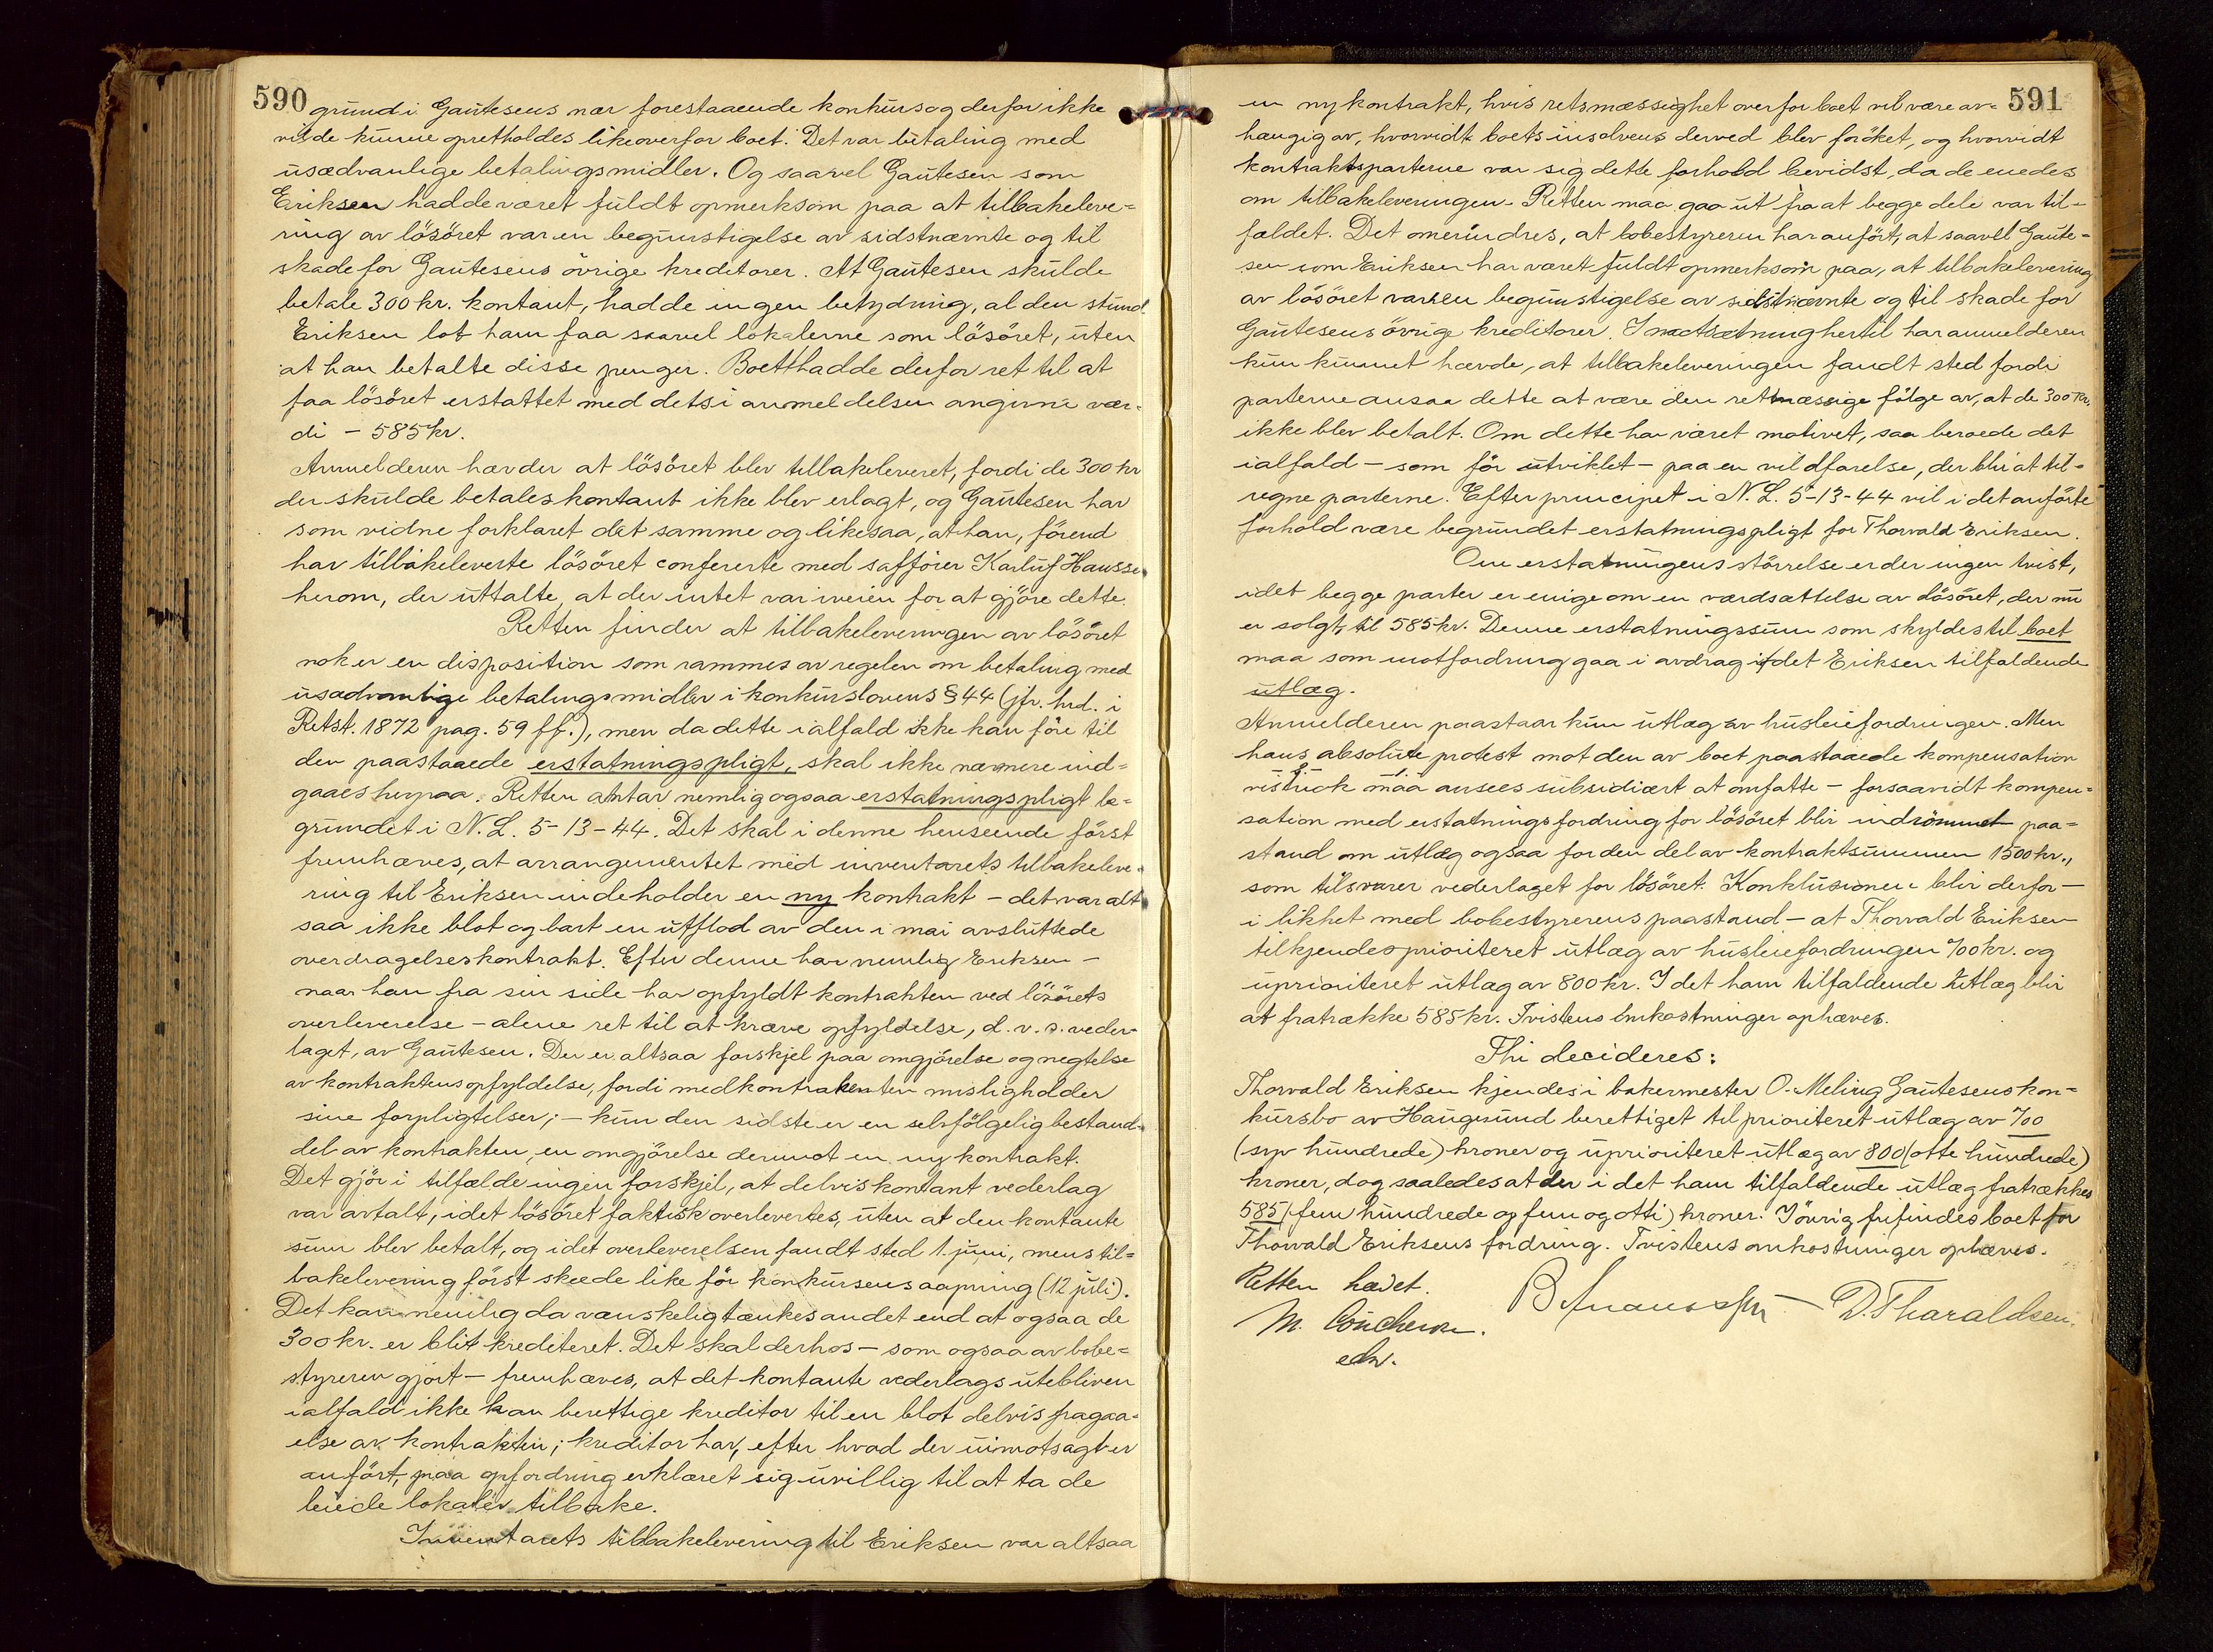 590
grund i Gautesens nær forestaaende konkurs og derfor ikke
vilde kunne opretholdes likeoverfor boet. Det var betaling med
usædvanlige betalingsmidler. Og saavel Gautesen som
Eriksen hadde været fuldt opmerksom paa at tilbakeleve=
ring av lösöret var en begunstigelse av sidstnævnte og til
skade for Gautesens övrige kreditorer. At Gautesen skulde
betale 300 kr. kontant, hadde ingen betydning, al den stund
Eriksen lot ham faa saavel lokalerne som lösöret, uten
at han betalte disse penger. Boet hadde derfor ret til at
faa lösöret erstattet med dets i anmeldelsen angivne vær=
di - 585 kr.
Anmelderen hævder at lösöret blev tilbakeleveret, fordi de 300 kr
der skulde betales kontant ikke blev erlagt, og Gautesen har
som vidne forklaret det samme og likesaa, at han, förend
han tilbakeleverte lösöret confererte med sakförer Karluf Hansse
herom, der uttalte, at der intet var iveien for at gjöre dette.
Retten finder at tilbakeleveringen av lösöret
nok er en disposition som rammes av regelen om betaling med
usædvanlige betalingsmidler i konkurslovens § 44 (jfr. hrd. i
Retst. 1872 pag. 59 ff.), men da dette ialfald ikke kan före til
den paastaaede erstatningspligt, skal ikke nærmere ind=
gaaes herpaa. Retten antar nemlig ogsaa erstatningspligt be=
grundet i N. L. 5-13-44. Det skal i denne henseende först
fremhæves, at arrangementet med inventarets tilbakeleve=
ring til Eriksen indeholder en ny kontrakt - det var alt
saa ikke blot og bart en utflod av den i mai avsluttede
overdragelseskontrakt. Efter denne har nemlig Eriksen -
naar han fra sin side har opfyldt kontrakten ved lösörets
overleverelse - alene ret til at kræve opfyldelse, d. v. s. veder-
laget, av Gautesen. Der er altsaa forskjel paa omgjörelse og negtelse
av kontraktens opfyldelse, fordi medkontrahenten misligholder
sine forpligtelser; - kun den sidste er en selvfölgelig bestand=
del av kontrakten, en omgjörelse derimot en ny kontrakt.
Det gjör i tilfælde ingen forskjel, at delvis kontant vederlag
var avtalt, idet lösöret faktisk overlevertes, uten at den kontante
sum blev betalt, og idet overleverelsen fandt sted 1. juni, mens til=
bakelevering först skeede like för konkursens aapning (12 juli).
Det kan nemlig da vanskelig tænkes andet end at ogsaa de
300 kr. er blit krediteret. Det skal derhos - som ogsaa av bobe=
styreren gjort - fremhæves, at det kontante vederlags utebliven
ialfald ikke kan berettige kreditor til en blot delvis fragaa=
else av kontrakten; kreditor har, efter hvad der uimotsagt er
anfört, paa opfordring erklæret sig uvillig til at ta de
leiede lokaler tilbake.
Inventarets tilbakelevering til Eriksen var altsaa
591
en ny kontrakt, hvis retsmæssighet overfor boet vil være av=
hængig av, hvorvidt boets insolvens derved blev foröket, og hvorvidt
kontraktsparterne var sig dette forhold bevidst, da de enedes
om tilbakeleveringen. Retten maa gaa ut fra at begge dele var til-
fældet. Det omerindres, at bobestyreren har anfört, at saavel Gaute=
sen som Eriksen har været fuldt opmerksom paa, at tilbakelevering
av lösöret var en begunstigelse av sidstnævnte og til skade for
Gautesens övrige kreditorer. I motsætning hertil har anmelderen
kun kunnet hævde, at tilbakeleveringen fandt sted fordi
parterne ansaa dette at være den retmæssige fölge av, at de 300 kr.
ikke blev betalt. Om dette har været motivet, saa beroede det
ialfald - som för utviklet - paa en vildfarelse, der blir at til=
regne parterne. Efter principet i N. L. 5-13-44 vil i det anförte
forhold være begrundet erstatningspligt for Thorvald Eriksen.
Om erstatningens störrelse er der ingen tvist,
idet begge parter er enige om en værdsættelse av lösöret, der nu
er solgt, til 585 kr. Denne erstatningssum som skyldes til boet
maa som motfordring gaa i avdrag i det Eriksen tilfaldende
utlæg.
Anmelderen paastaar kun utlæg av husleiefordringen. Men
hans absolute protest mot den av boet paastaaede kompensation
maa ansees subsidiært at omfatte - forsaavidt kompen=
sation med erstatningsfordring for lösöret blir indrömmet paa=
stand om utlæg ogsaa for den del av kontraktsummen 1500 kr.,
som tilsvarer vederlaget for lösöret. Konklusionen blir derfor -
i likhet med bobestyrerens paastand - at Thorvald Eriksen
tilkjendes prioriteret utlæg av husleiefordringen 700 kr. og
uprioriteret utlæg av 800 kr. I det ham tilfaldende utlæg blir
at fratrække 585 kr. Tvistens omkostninger ophæves.
Thi decideres:
Thorvald Eriksen kjendes i bakermester O. Meling Gautesens kon=
kursbo av Haugesund berettiget til prioriteret utlæg av 700
(syv hundrede) kroner og uprioriteret utlæg av 800 (otte hundrede)
kroner, dog saaledes at der i det ham tilfaldende utlæg fratrækkes
585 (fem hundrede og fem og otti) kroner. I övrig frifindes boet for
Thorvald Eriksens fordring. Tvistens omkostninger ophæves.
Retten hævet.
D. Tharaldsen.
M. Coucheron.
edv.